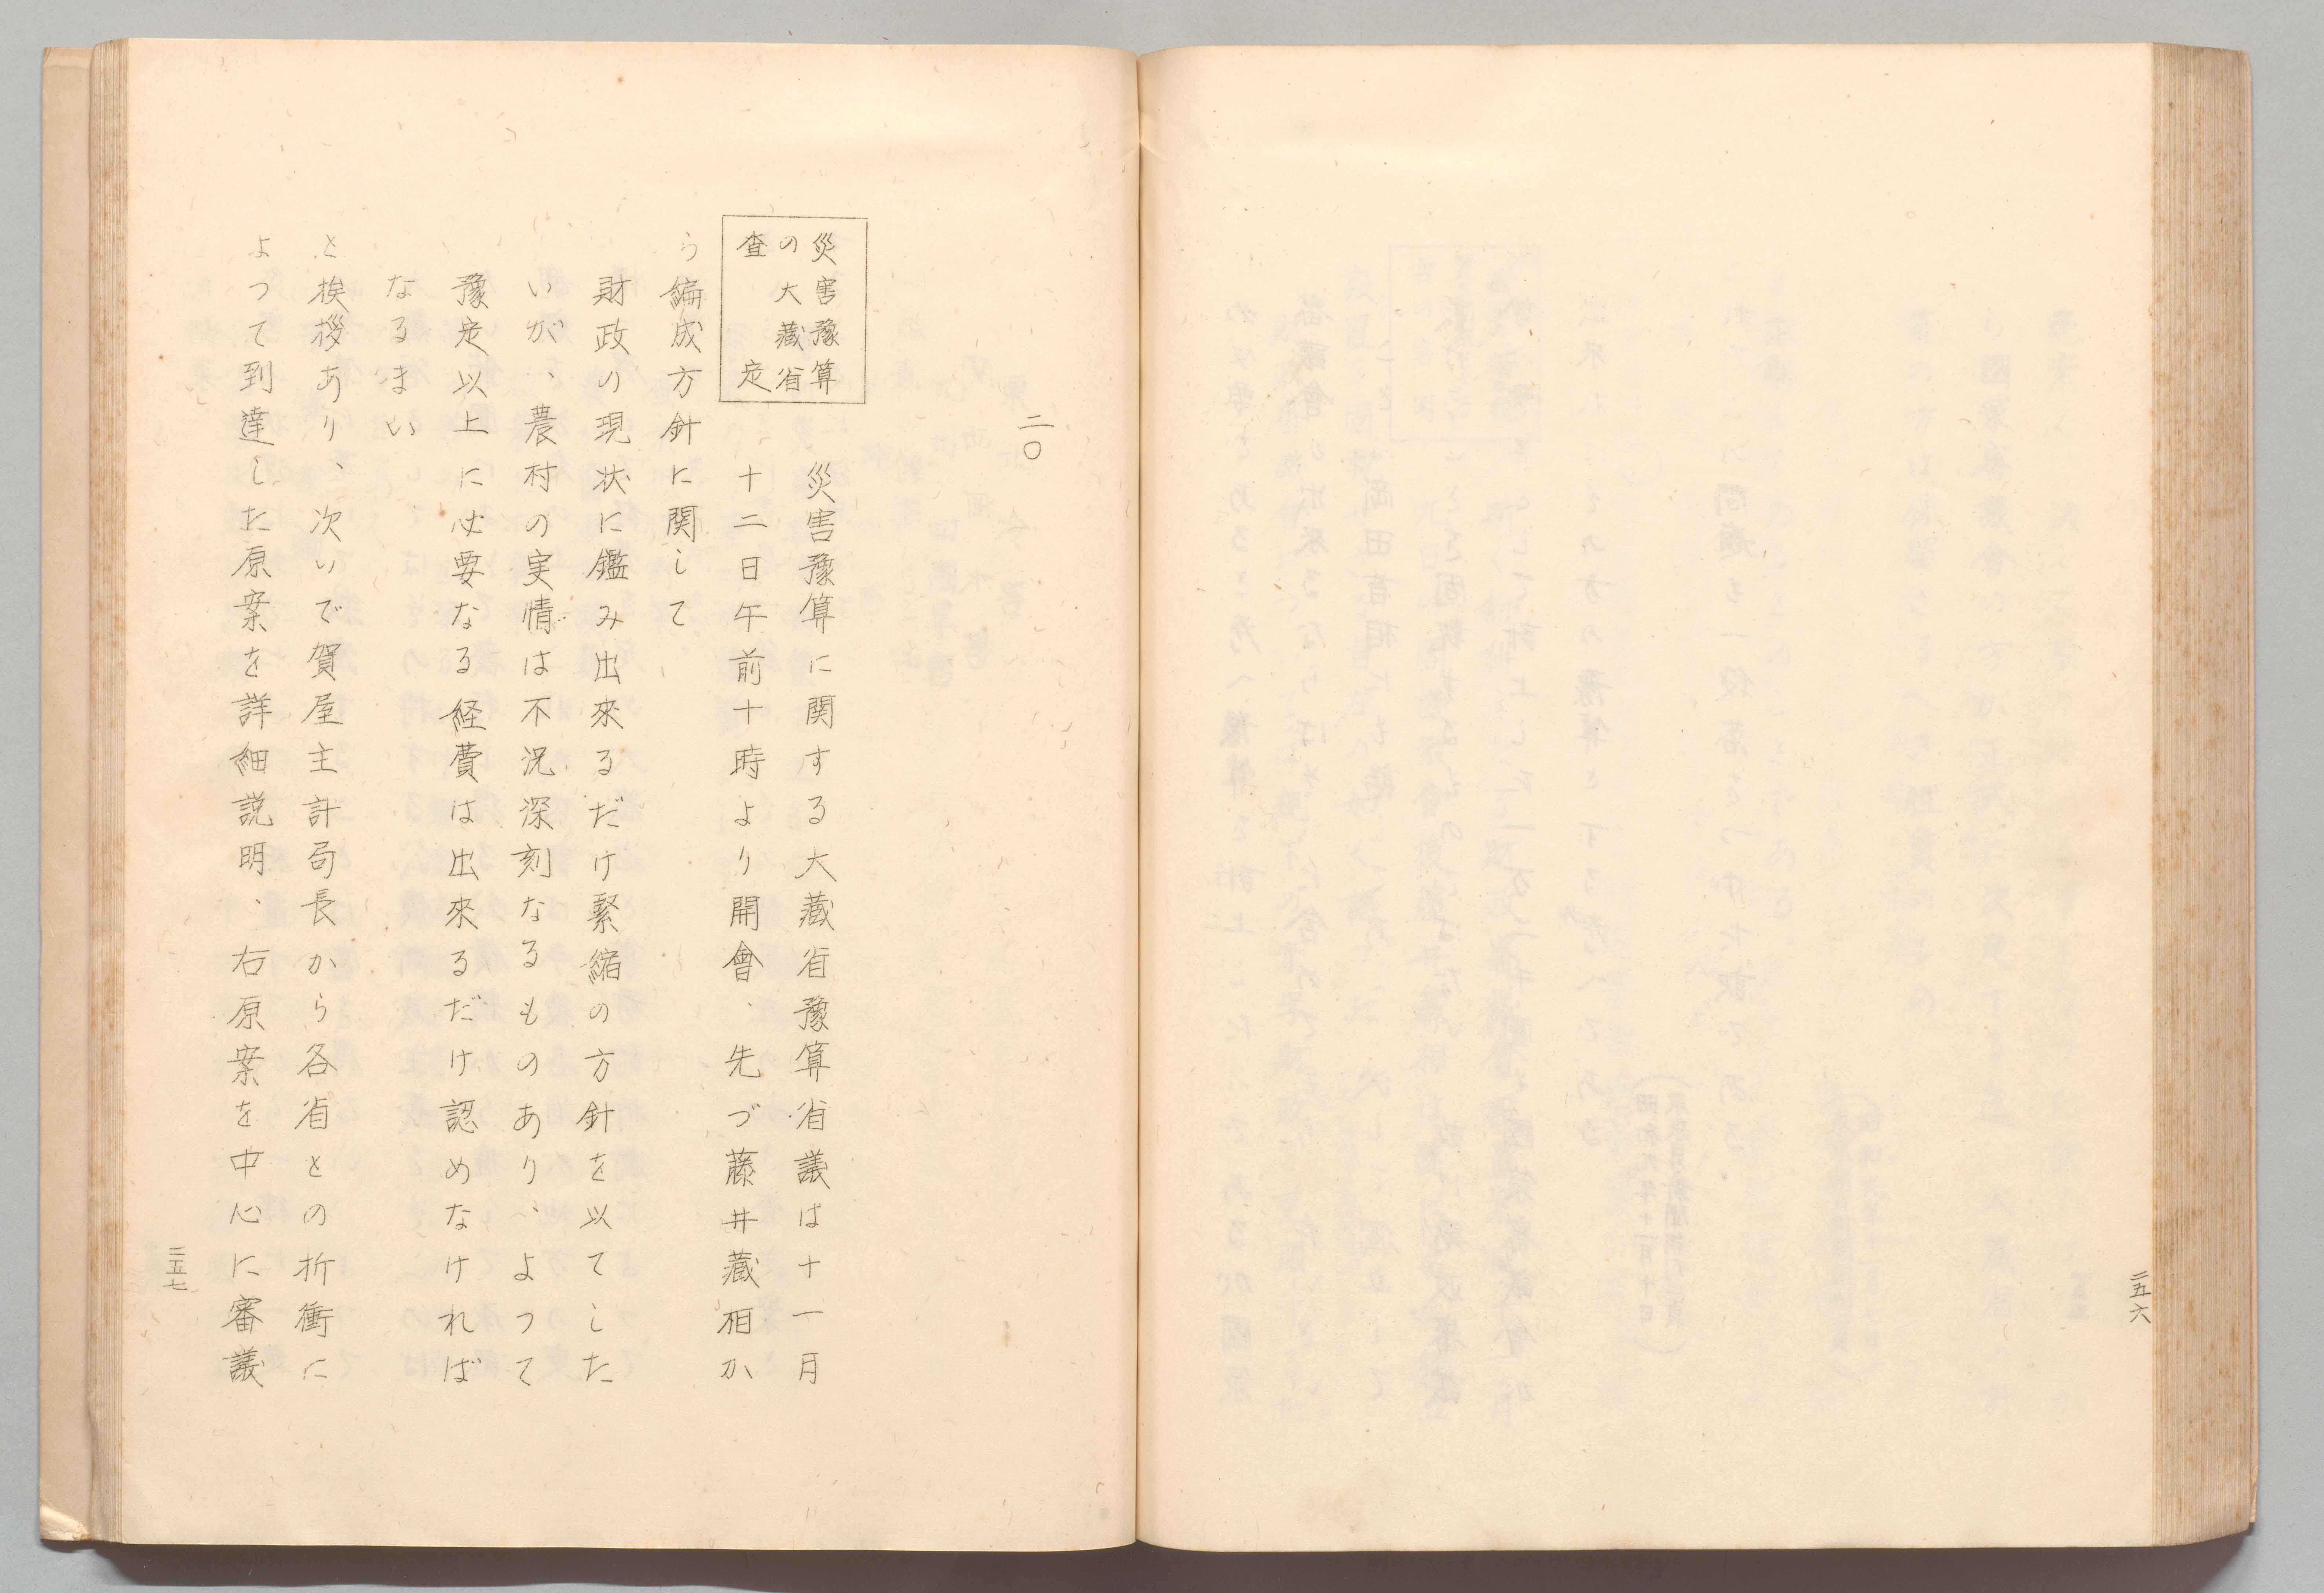 二五六
二〇
災害豫算
の大藏省
査定
災害豫算に関する大藏省豫算省議は十一月
十二日午前十時より開會、先づ藤井藏相か
ら編成方針に関して
財政の現状に鑑み出來るだけ緊縮の方針を以てした
いが、農村の実情は不況深刻なるものあり、よつて
豫定以上に必要なる経費は出來るだけ認めなければ
なるまい
と挨拶あり、次いで賀屋主計局長から各省との折衝に
よつて到達した原案を詳細説明、右原案を中心に審議
二五七